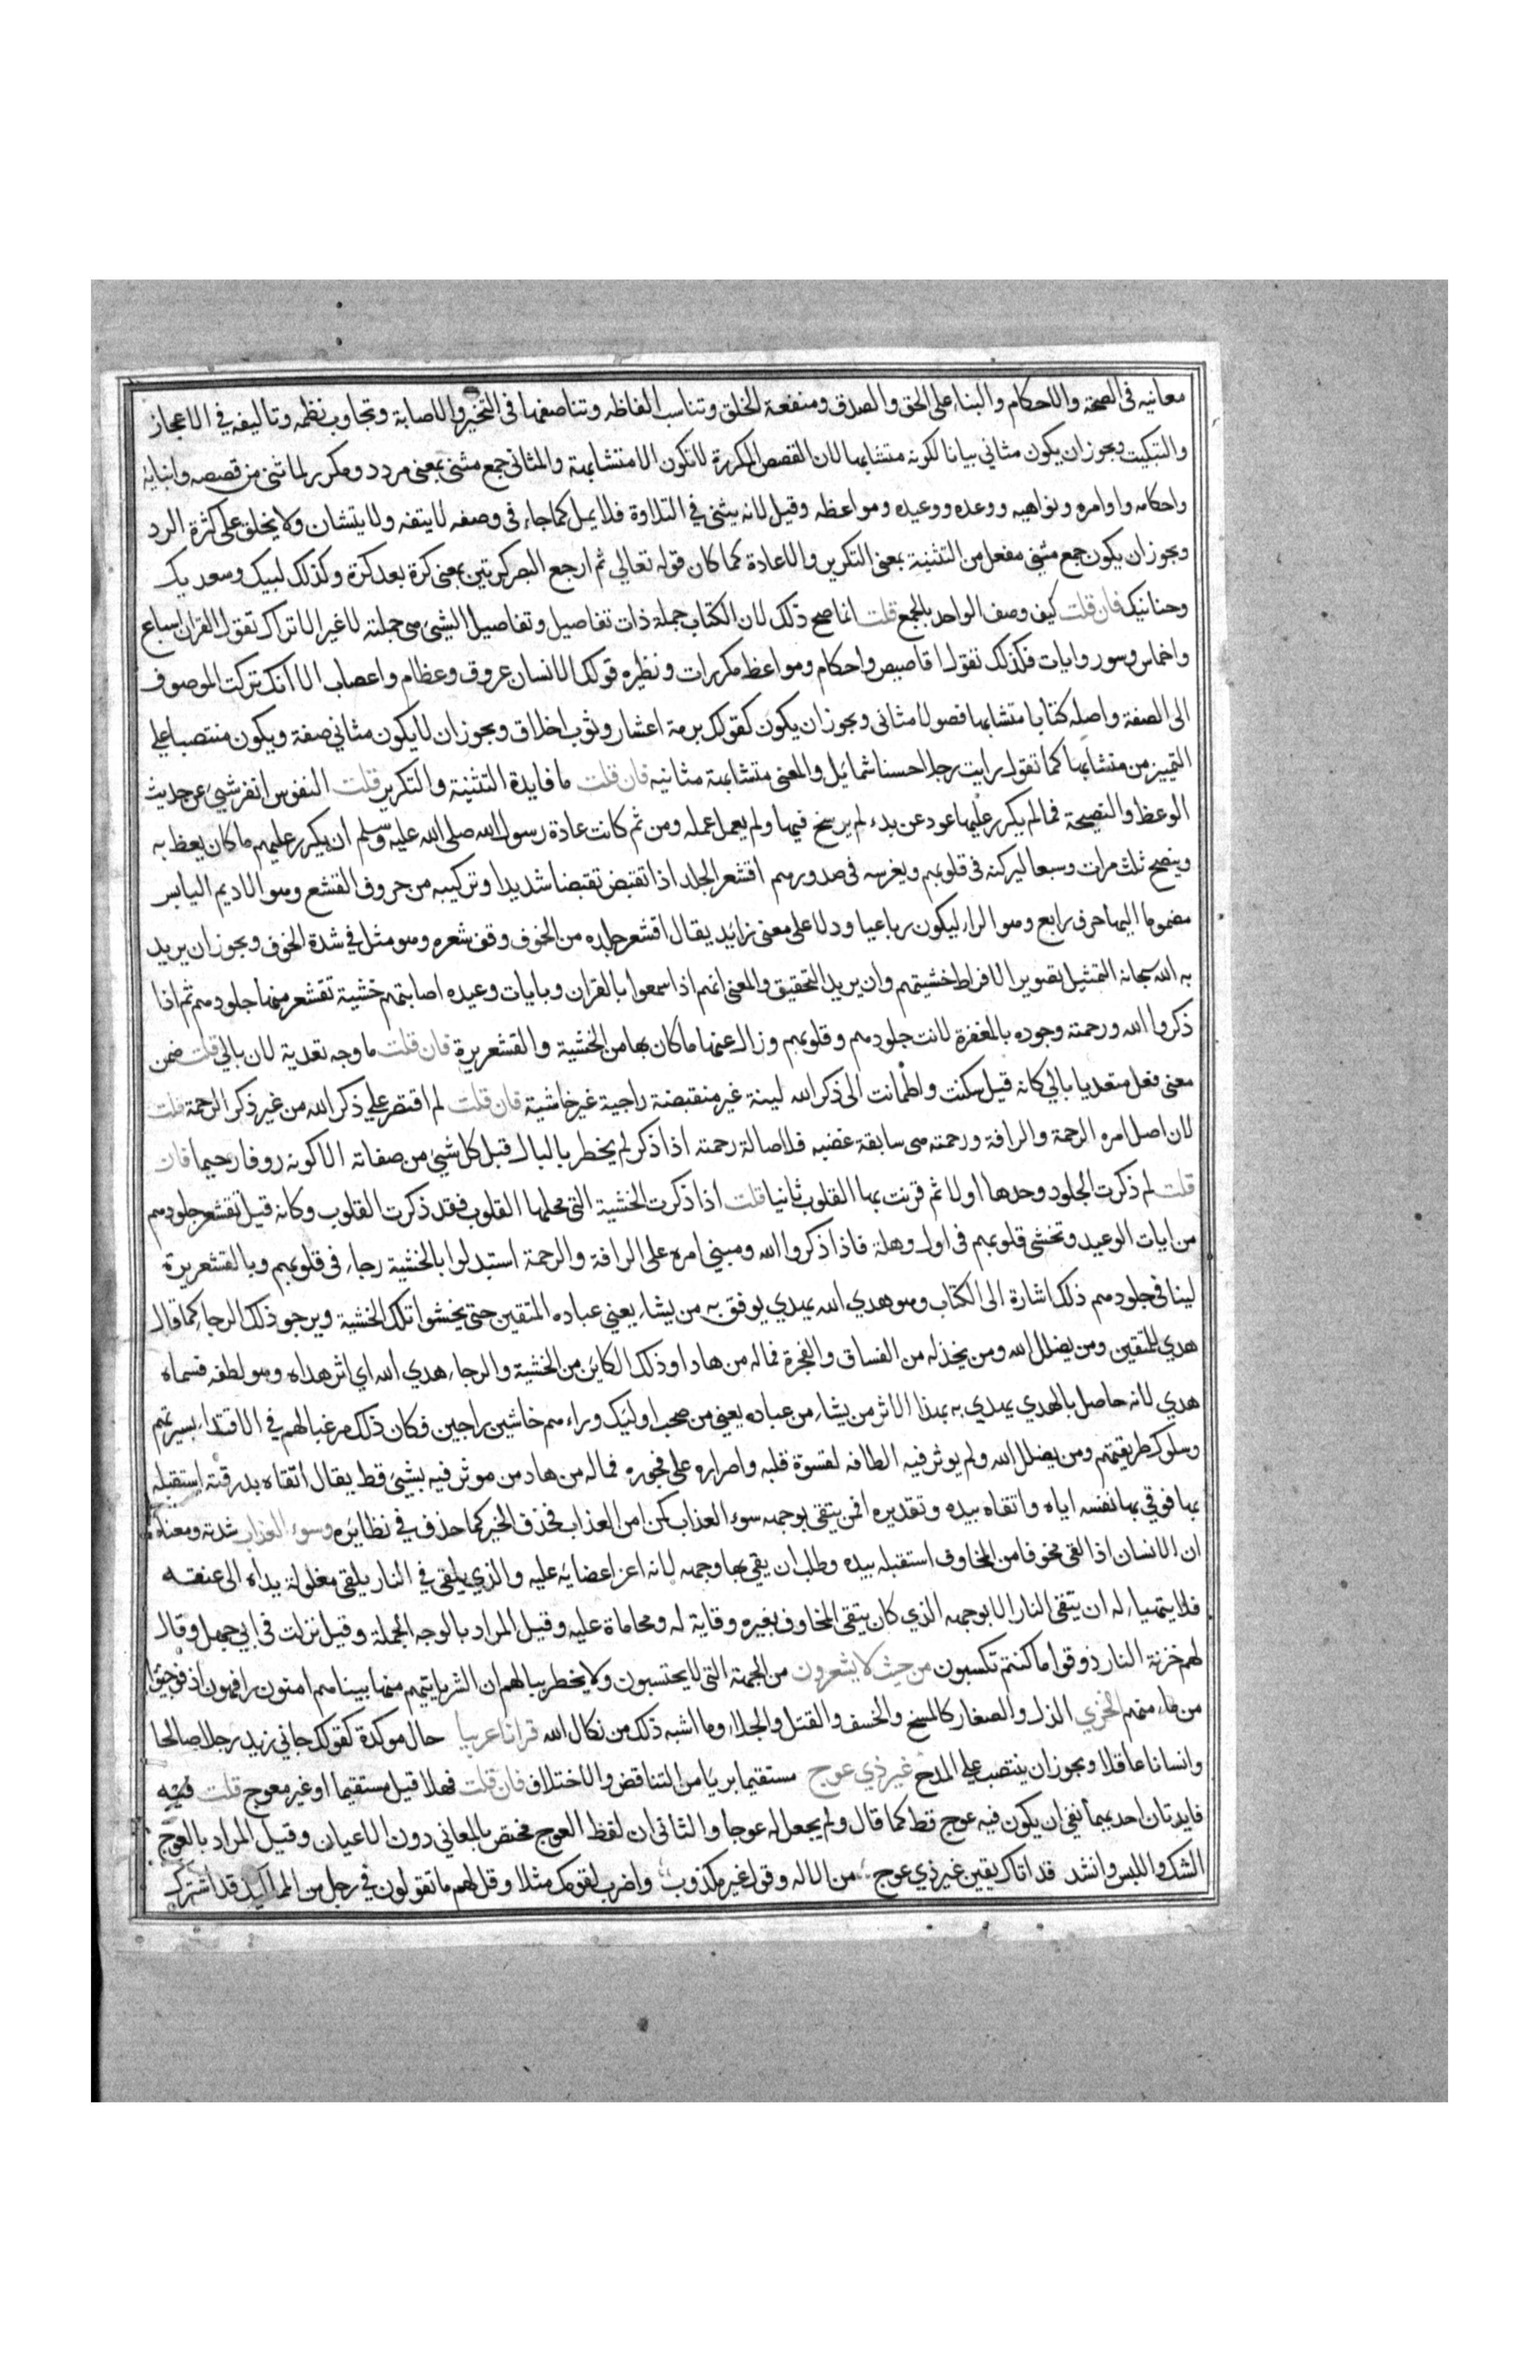 معانيه في الصحة والاحكام والبناء على الحق والصدق ومنفعة الخلق وتناسب الفاظه وتناصفها في التخير والاصابة وتجاوب نظمه وتاليفه في الاعجاز
والتبكيت ويجوز ان يكون مثاني بيانا لكونه متشابها لان القصص المكررة لا تكون الا متشابهة والمثاني جمع مثنى بمعنى مردد ومكرر لما ثني من قصصه وانبايه
واحكامه واوامره ونواهيه ووعده ووعيده ومواعظه وقيل لانه يثنى في التلاوة فلا يمل كما جاء في وصفه لا يتفه ولا يتشان ولا يخلق على كثرة الرد
ويجوز ان يكون جمع مثنى مفعل من التثنية بمعنى التكرير والاعادة كما كان قوله تعالى ثم ارجع البصر كرتين بمعنى كرة بعد كرة وكذلك لبيك وسعديك
وحنانيك فان قلت كيف وصف الواحد بالجمع قلت انما صح ذلك لان الكتاب جملة ذات تفاصيل وتفاصيل الشيئ هي جملته لا غير الا تراك تقول القران اسباع
واخماس وسور وايات فكذلك تقول اقاصيص واحكام ومواعظ مكررات ونظيره قولك الانسان عروق وعظام واعصاب الا انك تركت الموصوف
الى الصفة واصله كتابا متشابها فصولا مثاني ويجوز ان يكون كقولك برمة اعشار وثوب اخلاق ويجوز ان لا يكون مثاني صفة ويكون منتصبا على
التمييز من متشابها كما تقول رايت رجلا حسنا شمائل والمعنى متشابهة مثانيه فان قلت ما فايدة التثنية والتكرير قلت النفوس انفر شيئ عن حديث
الوعظ والنصيحة فما لم يكرر عليها عودا عن بدء لم يرسخ فيها ولم يعمل عمله ومن ثم كانت عادة رسول الله صلى الله عليه وسلم ان يكرر عليهم ما كان يعظ به
وينصح ثلث مرات وسبعا ليركزه في قلوبهم ويغرسه في صدورهم اقشعر الجلد اذا تقبض تقبضا شديدا وتركيبه من حروف القشع وهو الاديم اليابس
مضموما اليها حرف رابع وهو الراء ليكون رباعيا ودلا على معنى زائد يقال اقشعر جلده من الخوف وقف شعره وهو مثل في شدة الخوف ويجوز ان يريد
به الله سبحانه التمثيل تصويرا لافراط خشيتهم وان يريد التحقيق والمعنى انهم اذا سمعوا بالقران وبايات وعيده اصابتهم خشية تقشعر منها جلودهم ثم اذا
ذكروا الله ورحمته وجوده بالمغفرة لانت جلودهم وقلوبهم وزال عنها ما كان بها من الخشية والقشعريرة فان قلت ما وجه تعدية لان بالى قلت ضمن
معنى فعل متعديا بالى كانه قيل سكنت واطمانت الى ذكر الله لينة غير منقبضة راجية غير خاشية فان قلت لم اقتصر على ذكر الله من غير ذكر الرحمة قلت
لان اصل امره الرحمة والرافة ورحمته هي سابقة غضبه فلاصالة رحمته اذا ذكر لم يخطر بالبال قبل كل شيئ من صفاته الا كونه روفا رحيما فان
قلت لم ذكرت الجلود وحدها اولا ثم قرنت بها القلوب ثانيا قلت اذا ذكرت الخشية التي محلها القلوب فقد ذكرت القلوب وكانه قيل تقشعر جلودهم
من ايات الوعيد وتخشى قلوبهم في اول وهلة فاذا ذكروا الله ومبني امره على الرافة والرحمة استبدلوا بالخشية رجاء في قلوبهم وبالقشعريرة
لينا في جلودهم ذلك اشارة الى الكتاب وهو هدي الله يهدي يوفق به من يشاء يعني عباده المتقين حتى يخشوا تلك الخشية ويرجو ذلك الرجاء كما قال
هدي للمتقين ومن يضلل الله ومن يخذله من الفساق والفجرة فما له من هاد او ذلك الكاين من الخشية والرجاء هدي الله اي اثر هداه وهو لطفه فسماه
هدي لانه حاصل بالهدي يهدي به بهذا الاثر من يشاء من عباده يعني من صحب اوليك وراءهم خاشين راجين فكان ذلك مرغبا لهم في الاقتداء بسيرتهم
وسلوك طريقتهم ومن يضلل الله ولم يوثر فيه الطافه لقسوة قلبه واصراره على فجوره فما له من هاد من موثر فيه بشيئ قط يقال اتقاه بدرقته استقبله
بها فوقي بها نفسه اياه واتقاه بيده وتقديره افمن يتقي بوجهه سوء العذاب كمن امن العذاب فحذف الخبر كما حذف في نظائره وسوء العذاب شدته ومعناه
ان الانسان اذا لقي مخوفا من المخاوف استقبله بيده وطلب ان يقي بها وجهه لانه اعز اعضايه عليه والذي يلقى في النار يلقى مغلولة يداه الى عنقه
فلا يتهياء له ان يتقي النار الا بوجهه الذي كان يتقي المخاوف بغيره وقاية له ومحاماة عليه وقيل المراد بالوجه الجملة وقيل نزلت في ابي جهل وقال
لهم خزنة النار ذوقوا ما كنتم تكسبون من حيث لا يشعرون من الجهة التي لا يحتسبون ولا يخطر ببالهم ان الشر ياتيهم منها بينا هم امنون رافهون اذ فوجئوا
من مامنهم الخزي الذل والصغار كالمسخ والخسف والقتل والجلاء وما اشبه ذلك من نكال الله قرانا عربيا حال موكدة كقولك جاني زيد رجلا صالحا
وانسانا عاقلا ويجوز ان ينتصب على المدح غير ذي عوج مستقيما بريا من التناقض والاختلاف فان قلت فهلا قيل مستقيما او غير معوج قلت فيه
فايدتان احديهما نفي ان يكون فيه عوج قط كما قال ولم يجعل له عوجا والثاني ان لفظ العوج مختص بالمعاني دون الاعيان وقيل المراد بالعوج
الشك واللبس وانشد قد اتاك يقين غير ذي عوج من الاله وقول غير مكذوب واضرب لقومك مثلا وقل لهم ما تقولون في رجل من المماليك قد اشترك